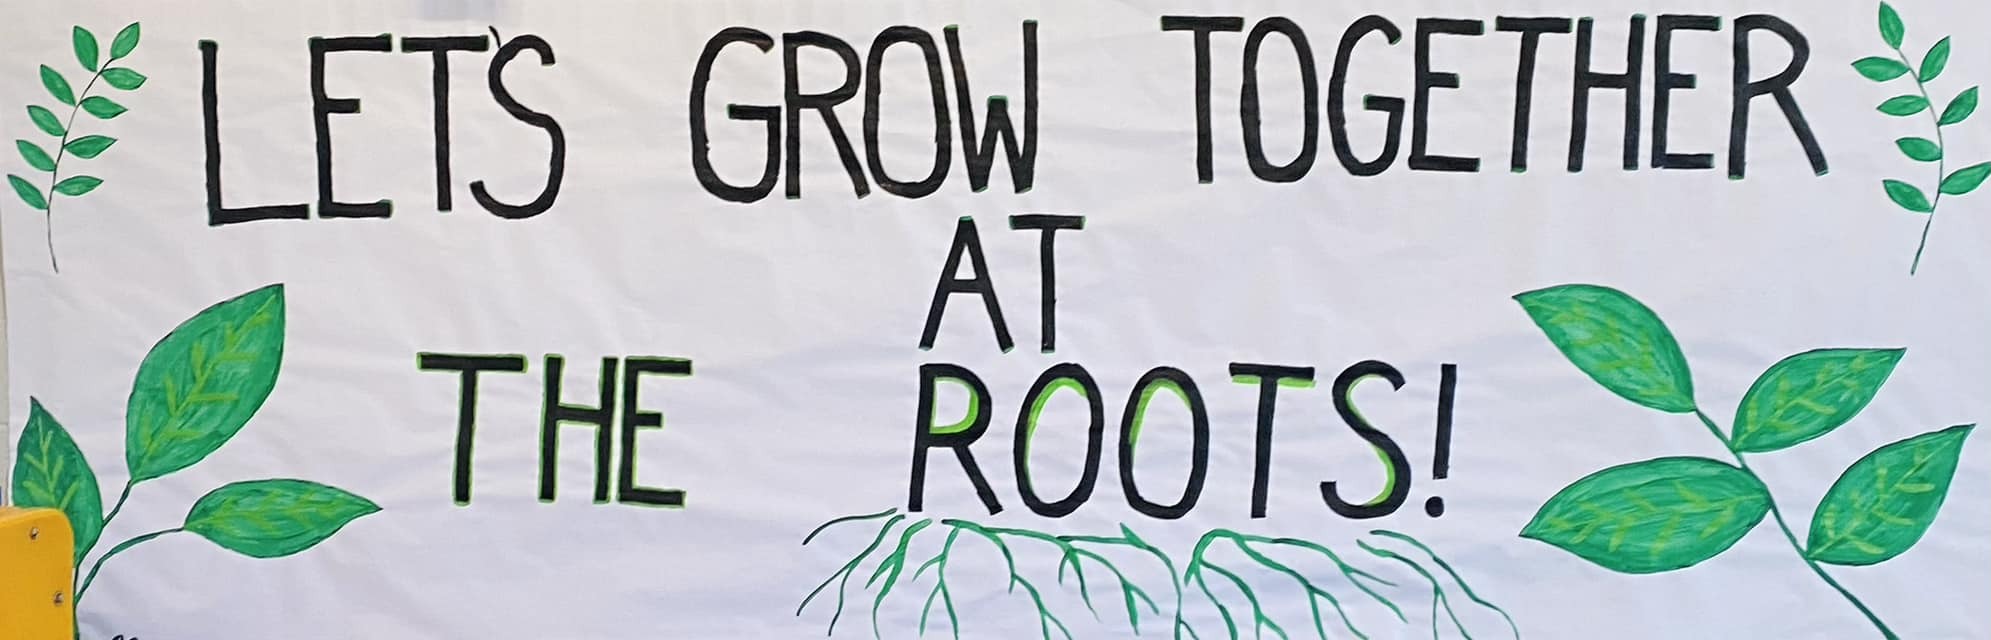 LET'S GROW TOGETHER
AT
THE ROOTS!